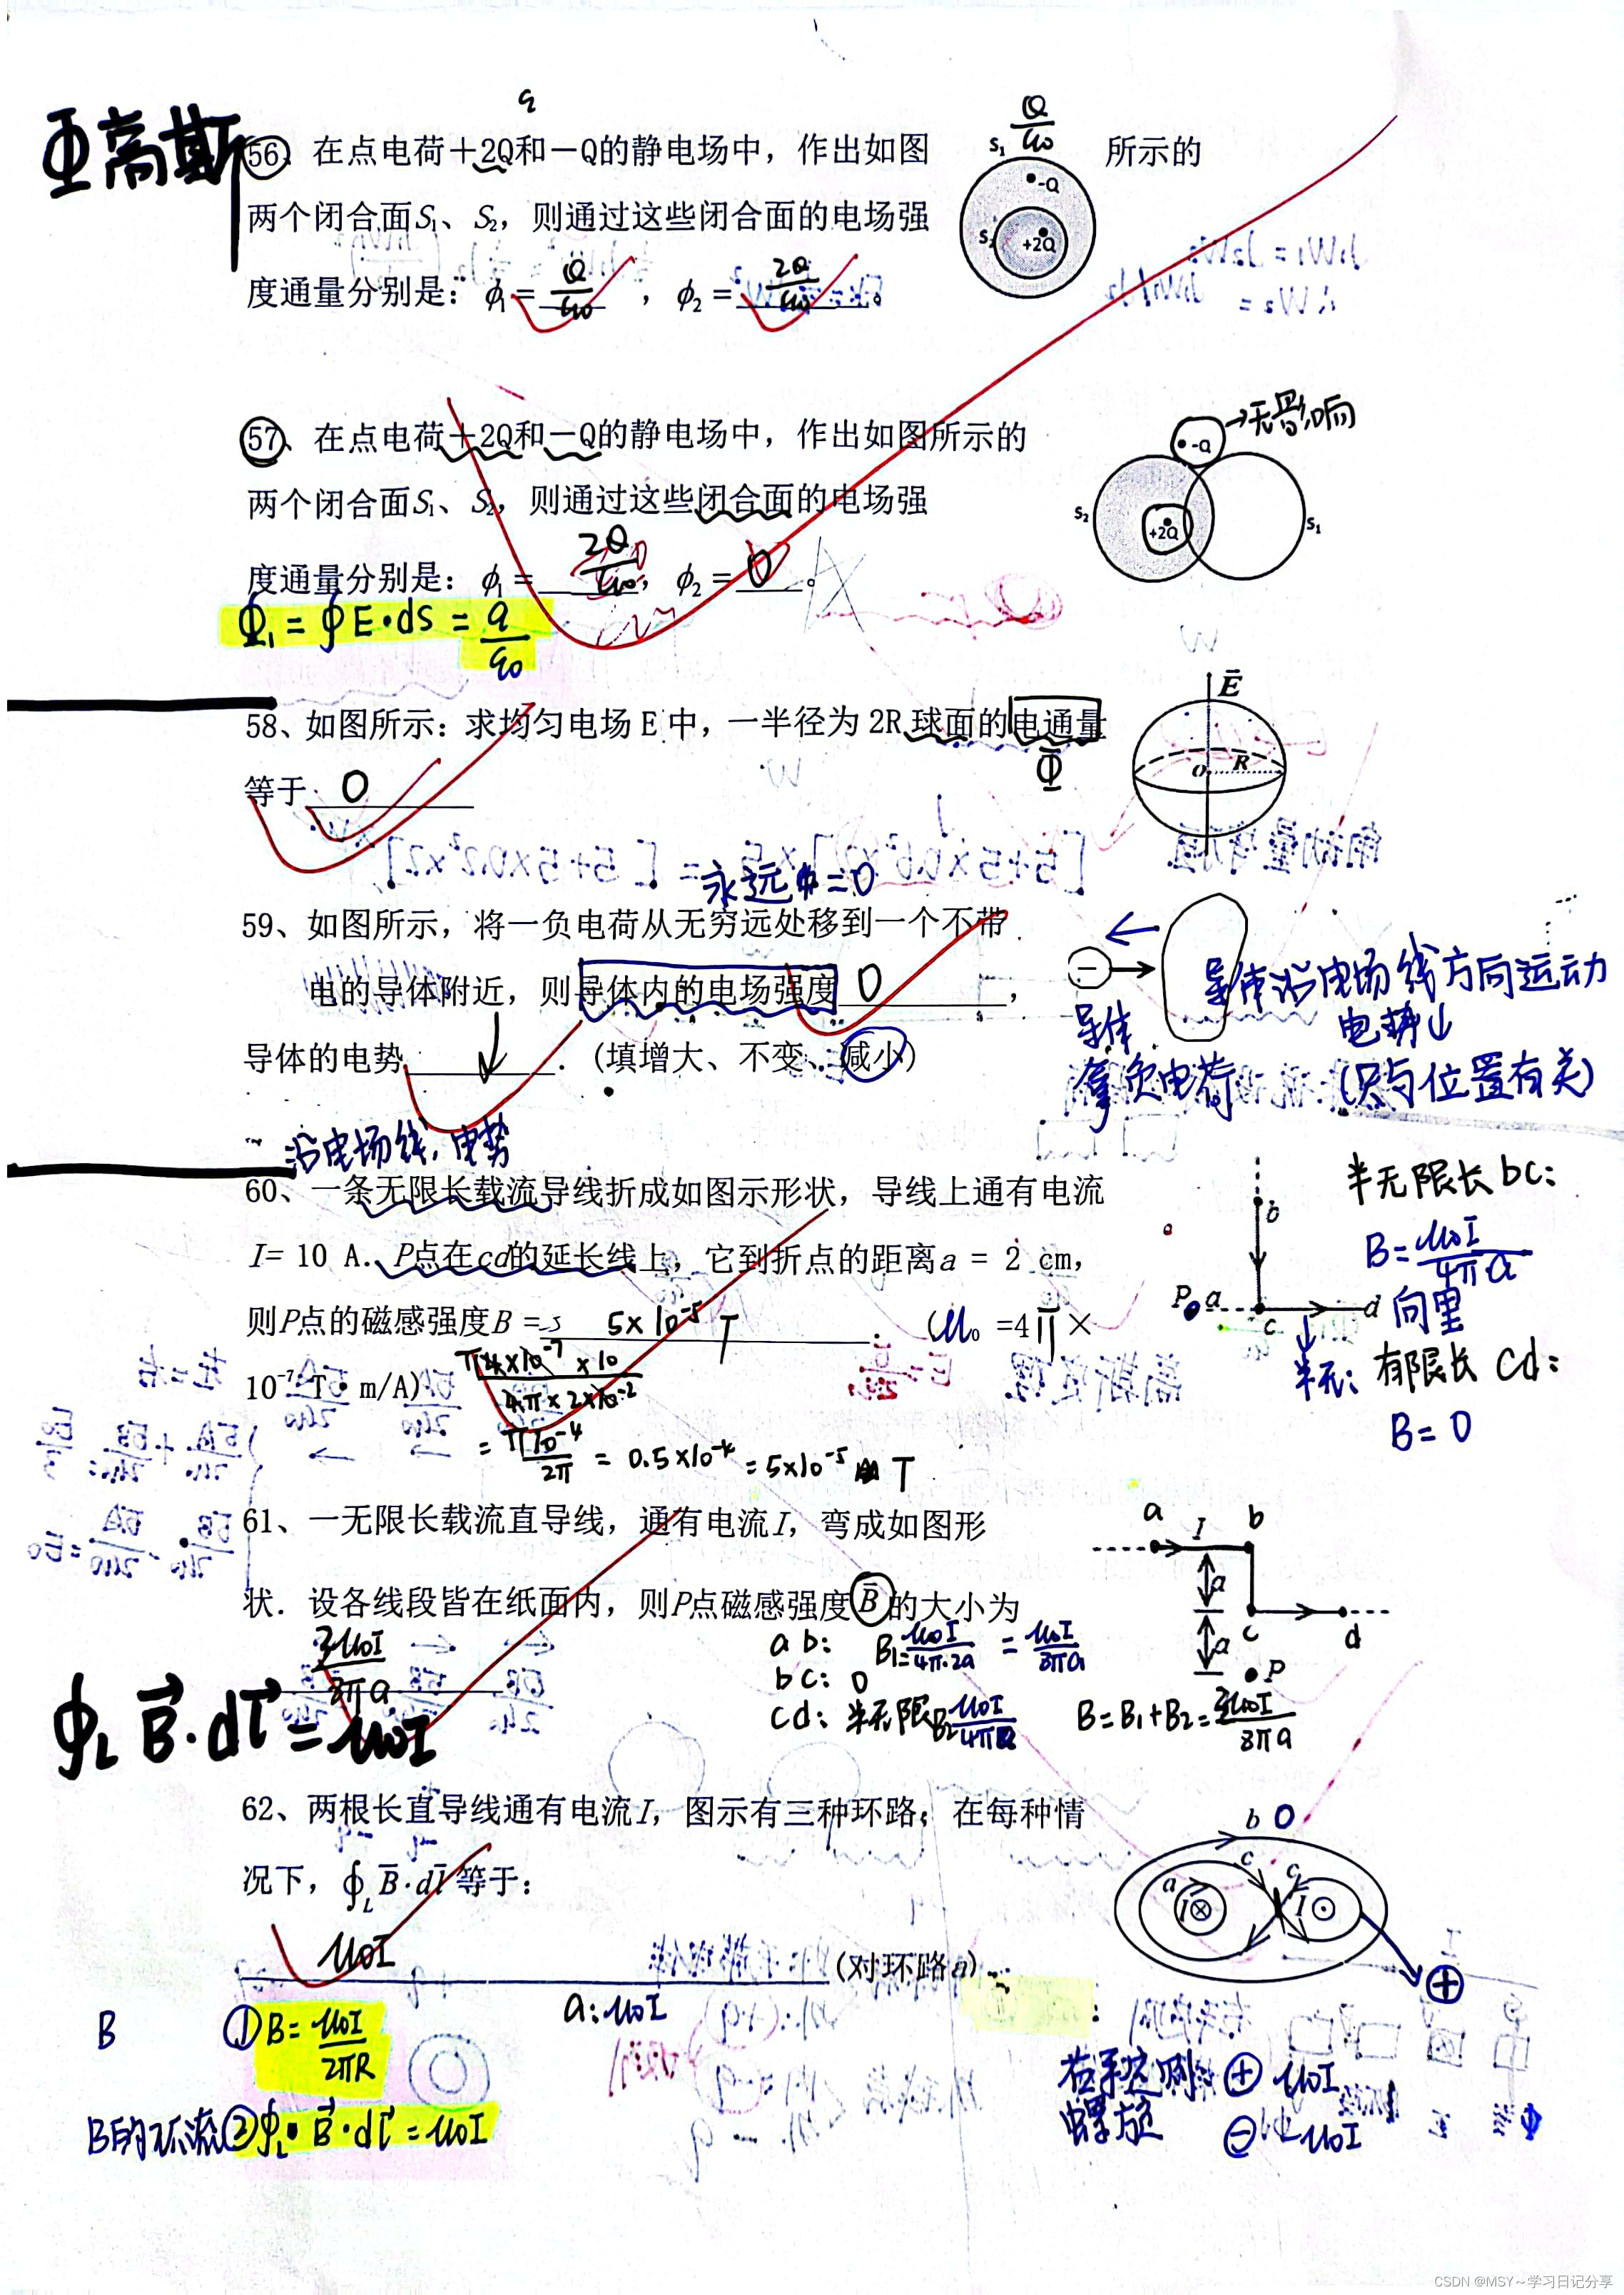 亚高斯
56、在点电荷+2Q和-Q的静电场中，作出如图所示的
两个闭合面S₁、S₂，则通过这些闭合面的电场强
度通量分别是：φ₁=Q/ε0，φ₂=2Q/ε0。
Q/ε0
S₁
-Q
S₂
+2Q
57、在点电荷+2Q和-Q的静电场中，作出如图所示的
两个闭合面S₁、S₂，则通过这些闭合面的电场强
度通量分别是：φ₁=2Q/ε0，φ₂=0。
Φ₁=∮E·dS=q/ε0
-Q →无影响
S₂
+2Q
S₁
58、如图所示：求均匀电场E中，一半径为2R球面的电通量
Φ
等于 0
E
o R
永远Φ=0
59、如图所示，将一负电荷从无穷远处移到一个不带
电的导体附近，则导体内的电场强度 0 ，
导体的电势 ↓ .（填增大、不变、减小）
沿电场线，电势
导体
靠负电荷
导体沿电场线方向运动
电势↓
(只与位置有关)
60、一条无限长载流导线折成如图示形状，导线上通有电流
I= 10 A．P点在cd的延长线上，它到折点的距离a = 2 cm，
则P点的磁感强度B = 5×10⁻⁵ T . (μ₀ =4π×
10⁻⁷ T·m/A)
π4×10⁻⁷×10/4π×2×10⁻²
=π10⁻⁴/2π = 0.5×10⁻⁴ = 5×10⁻⁵ T
b
P a c d
半无限长bc：
B=μ0I/4πa
向里
半无： 有限长cd：
B=0
61、一无限长载流直导线，通有电流I，弯成如图形
状．设各线段皆在纸面内，则P点磁感强度B的大小为
3μ0I/8πa
ab： B₁=μ0I/4π·2a = μ0I/8πa
bc：0
cd：半无限B₂μ0I/4πa
B=B₁+B₂=3μ0I/8πa
a I b
a
c d
a
P
∮L B·dl=μ0I
62、两根长直导线通有电流I，图示有三种环路；在每种情
况下，∮L B·dl等于：
μ0I (对环路a)
a：μ0I
b 0
c c
a I⊗ I⊙
⊕
B ①B=μ0I/2πR
B的环流②∮L B·dl=μ0I
右手定则 ⊕ μ0I
螺旋 ⊖ -μ0I
CSDN @MSY~学习日记分享